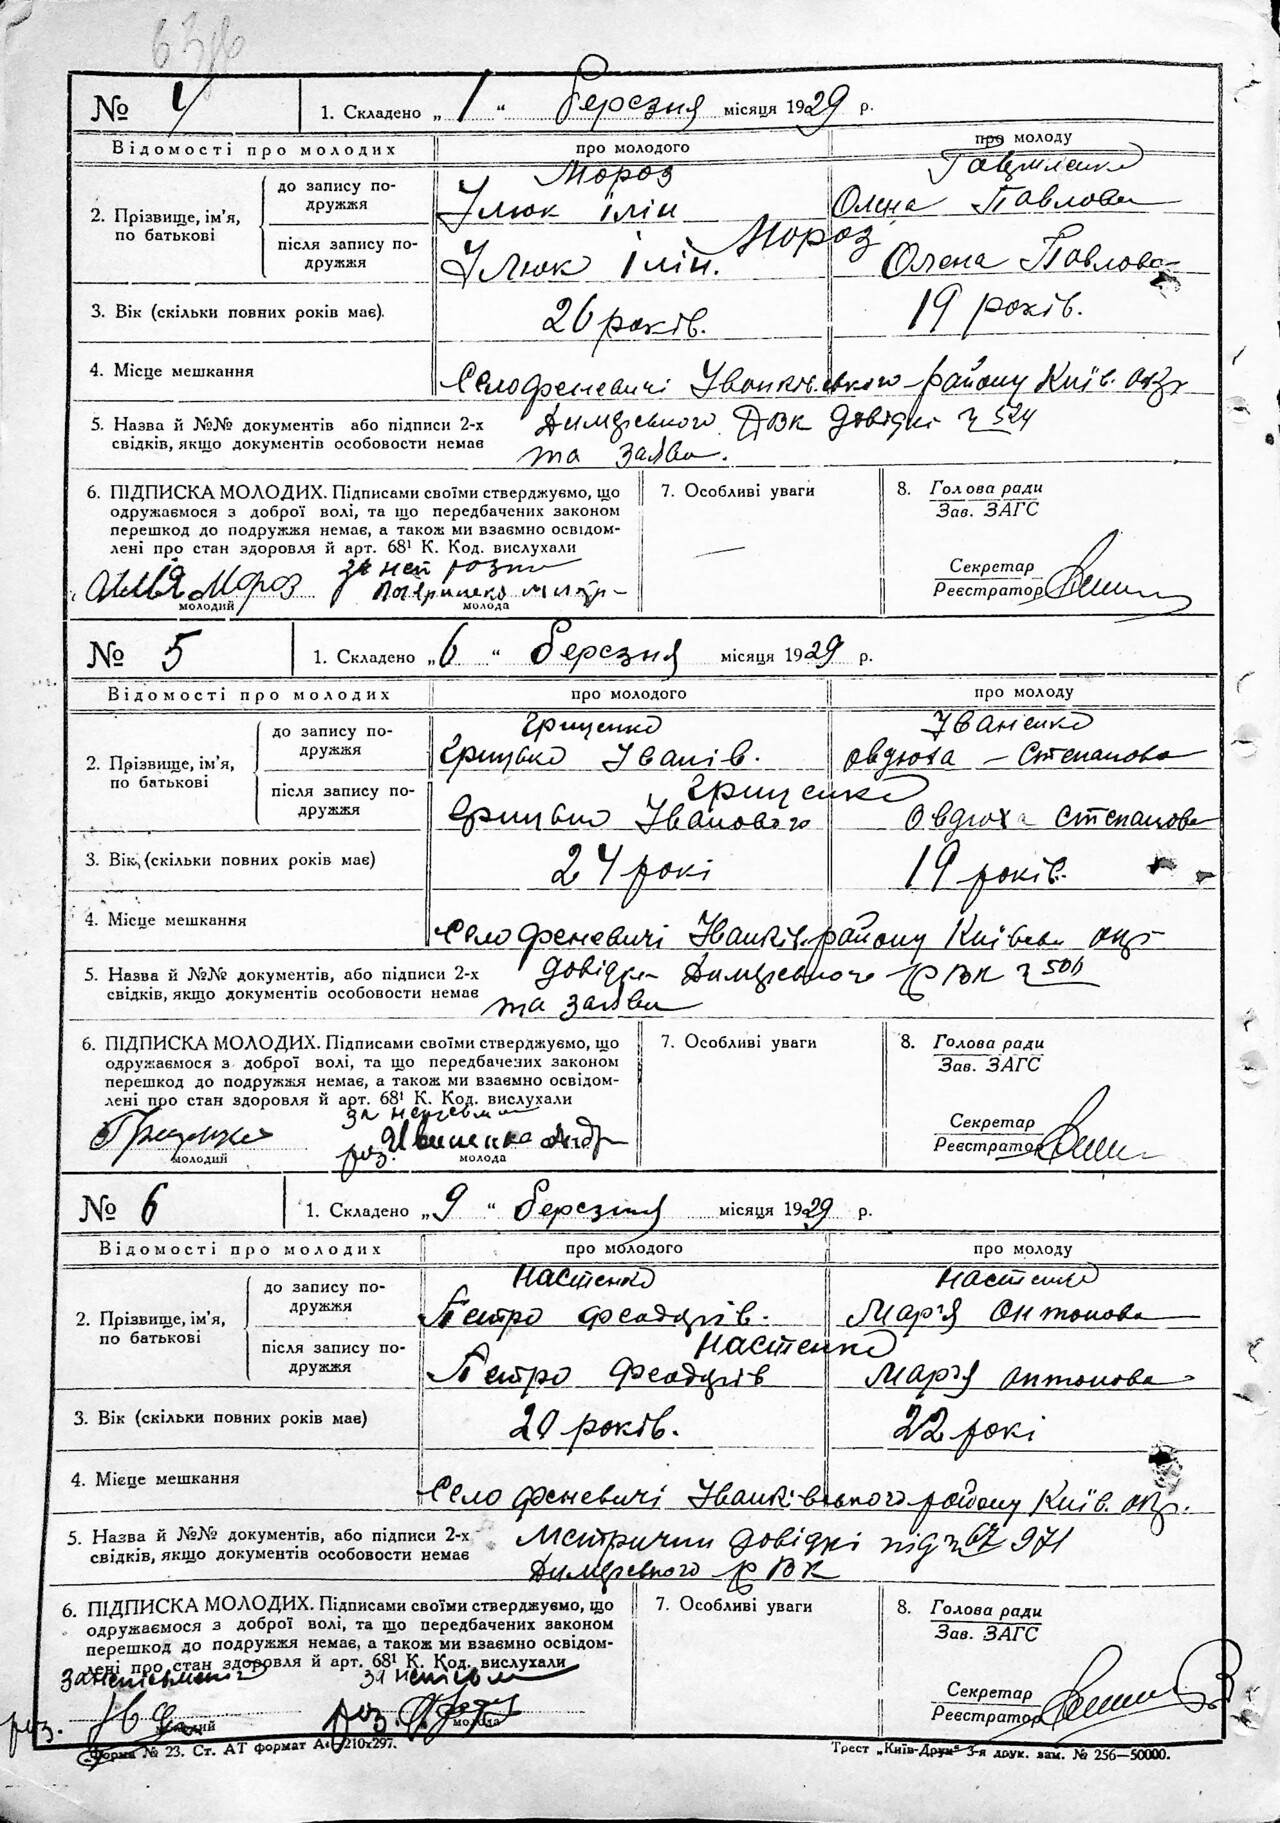 № 4
1. Складено „1“ березня місяця 1929 р.
Відомості про молодих
про молодого
про молоду
2. Прізвище, ім'я, по батькові
до запису подружжя
Мороз
Ілюк Ілін
Олена Павлова
після запису подружжя
Мороз
Ілюк Ілін.
Олена Павлова
3. Вік (скільки повних років має).
26 років.
19 років.
4. Місце мешкання
Село Феневичі Іванків.ського району Київ. окр
5. Назва й №№ документів або підписи 2-х
свідків, якщо документів особовости немає
Димерського РВК довідкі ч 524
та заяви.
6. ПІДПИСКА МОЛОДИХ. Підписами своїми стверджуємо, що
одружаємося з доброї волі, та що передбачених законом
перешкод до подружжя немає, а також ми взаємно освідом-
лені про стан здоровля й арт. 68¹ К. Код. вислухали
Мороз
молодий
за неї
молода
7. Особливі уваги
—
8. Голова ради
Зав. ЗАГС
Секретар
Реєстратор
№ 5
1. Складено „6“ березня місяця 1929 р.
Відомості про молодих
про молодого
про молоду
2. Прізвище, ім'я,
по батькові
до запису по-
дружжя
Гриценко
Грицько Іванів.
Іваненко
Овдюха – Степанова
після запису по-
дружжя
Гриценко
Грицько Іванового
Овдюха Степанова
3. Вік, (скільки повних років має)
24 рокі
19 років.
4. Місце мешкання
Село Феневичі Іванків. району Київськ окр
5. Назва й №№ документів, або підписи 2-х
свідків, якщо документів особовости немає
довідки Димерського РВК ч 506
та заяви
6. ПІДПИСКА МОЛОДИХ. Підписами своїми стверджуємо, що
одружаємося з доброї волі, та що передбачених законом
перешкод до подружжя немає, а також ми взаємно освідом-
лені про стан здоровля й арт. 68¹ К. Код. вислухали
Гриценко
молодий
за
роз. Іваненко
молода
7. Особливі уваги
8. Голова ради
Зав. ЗАГС
Секретар
Реєстратор
№ 6
1. Складено „9“ березня місяця 1929 р.
Відомості про молодих
про молодого
про молоду
2. Прізвище, ім'я,
по батькові
до запису по-
дружжя
Настенко
Петро Феодорів.
Настенко
Мар'я Онтонова
після запису по-
дружжя
Настенко
Петро Феодорів
Мар'я Онтонова
3. Вік (скільки повних років має)
20 років.
22 рокі
4. Місце мешкання
Село Феневичі Іванківського району Київ. окр.
5. Назва й №№ документів, або підписи 2-х
свідків, якщо документів особовости немає
Метричні довідкі під ч 67 971
Димерського РВК
6. ПІДПИСКА МОЛОДИХ. Підписами своїми стверджуємо, що
одружаємося з доброї волі, та що передбачених законом
перешкод до подружжя немає, а також ми взаємно освідом-
лені про стан здоровля й арт. 68¹ К. Код. вислухали
роз.
молодий
роз.
молода
7. Особливі уваги
8. Голова ради
Зав. ЗАГС
Секретар
Реєстратор
Форма № 23. Ст. АТ формат А₄ 210x297.
Трест „Київ-Друк“ 3-я друк. зам. № 256—50000.